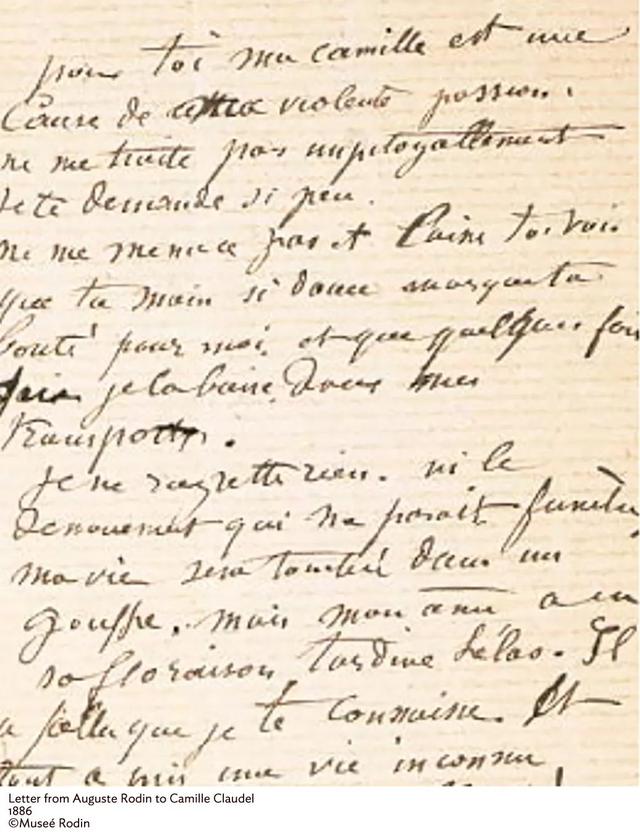 pour toi ma camille est une
Cause de violente passion.
ne me traite pas impitoyallement
Je te demande si peu.
ne me menace pas et laisse toi voir
que ta main si douce marque ta
bonté pour moi. et que quelques fois
je la baise dans mes
transports.
Je ne regrette rien. ni le
denouement qui me parait funèbre
ma vie sera tombée dans un
gouffre. mais mon ame a eu
sa floraison, tardive hélas. Il
a fallu que je te connaisse. Et
tout a une vie inconnue
Letter from Auguste Rodin to Camille Claudel
1886
©Museé Rodin